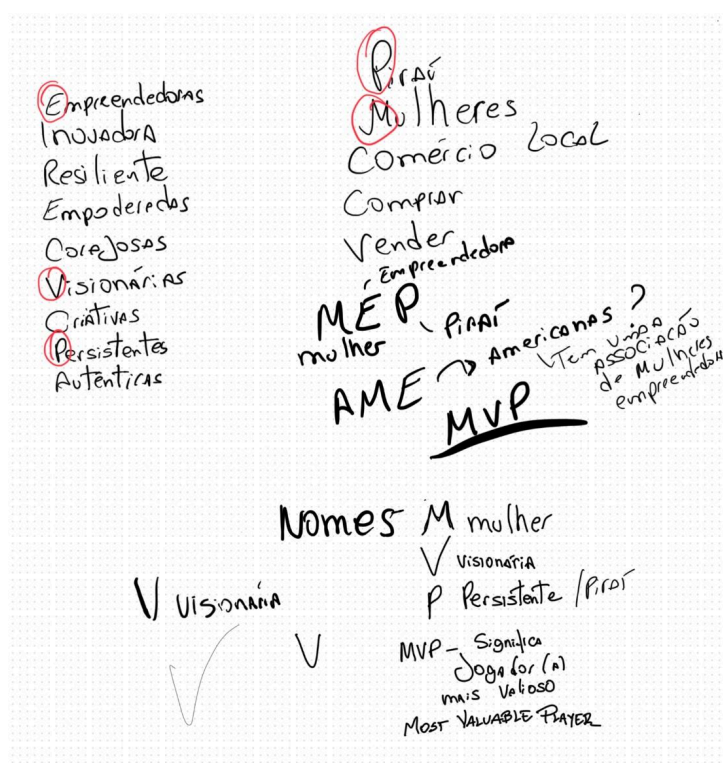 Empreendedoras
Inovadora
Resiliente
Empoderedas
Corejosas
Visionárias
Criativas
Persistentes
Autênticas
Piraí
Mulheres
Comércio Local
Comprar
Vender
Empreendedora
MEP
mulher
Piraí
AME → Americanas ?
Tem uma
ASSOCIAÇÃO
de Mulheres
empreendedora
MVP
Nomes M mulher
V Visionária
P Persistente / Piraí
V Visionária
V
MVP - Significa
Jogador (a)
mais Valioso
MOST VALUABLE PLAYER